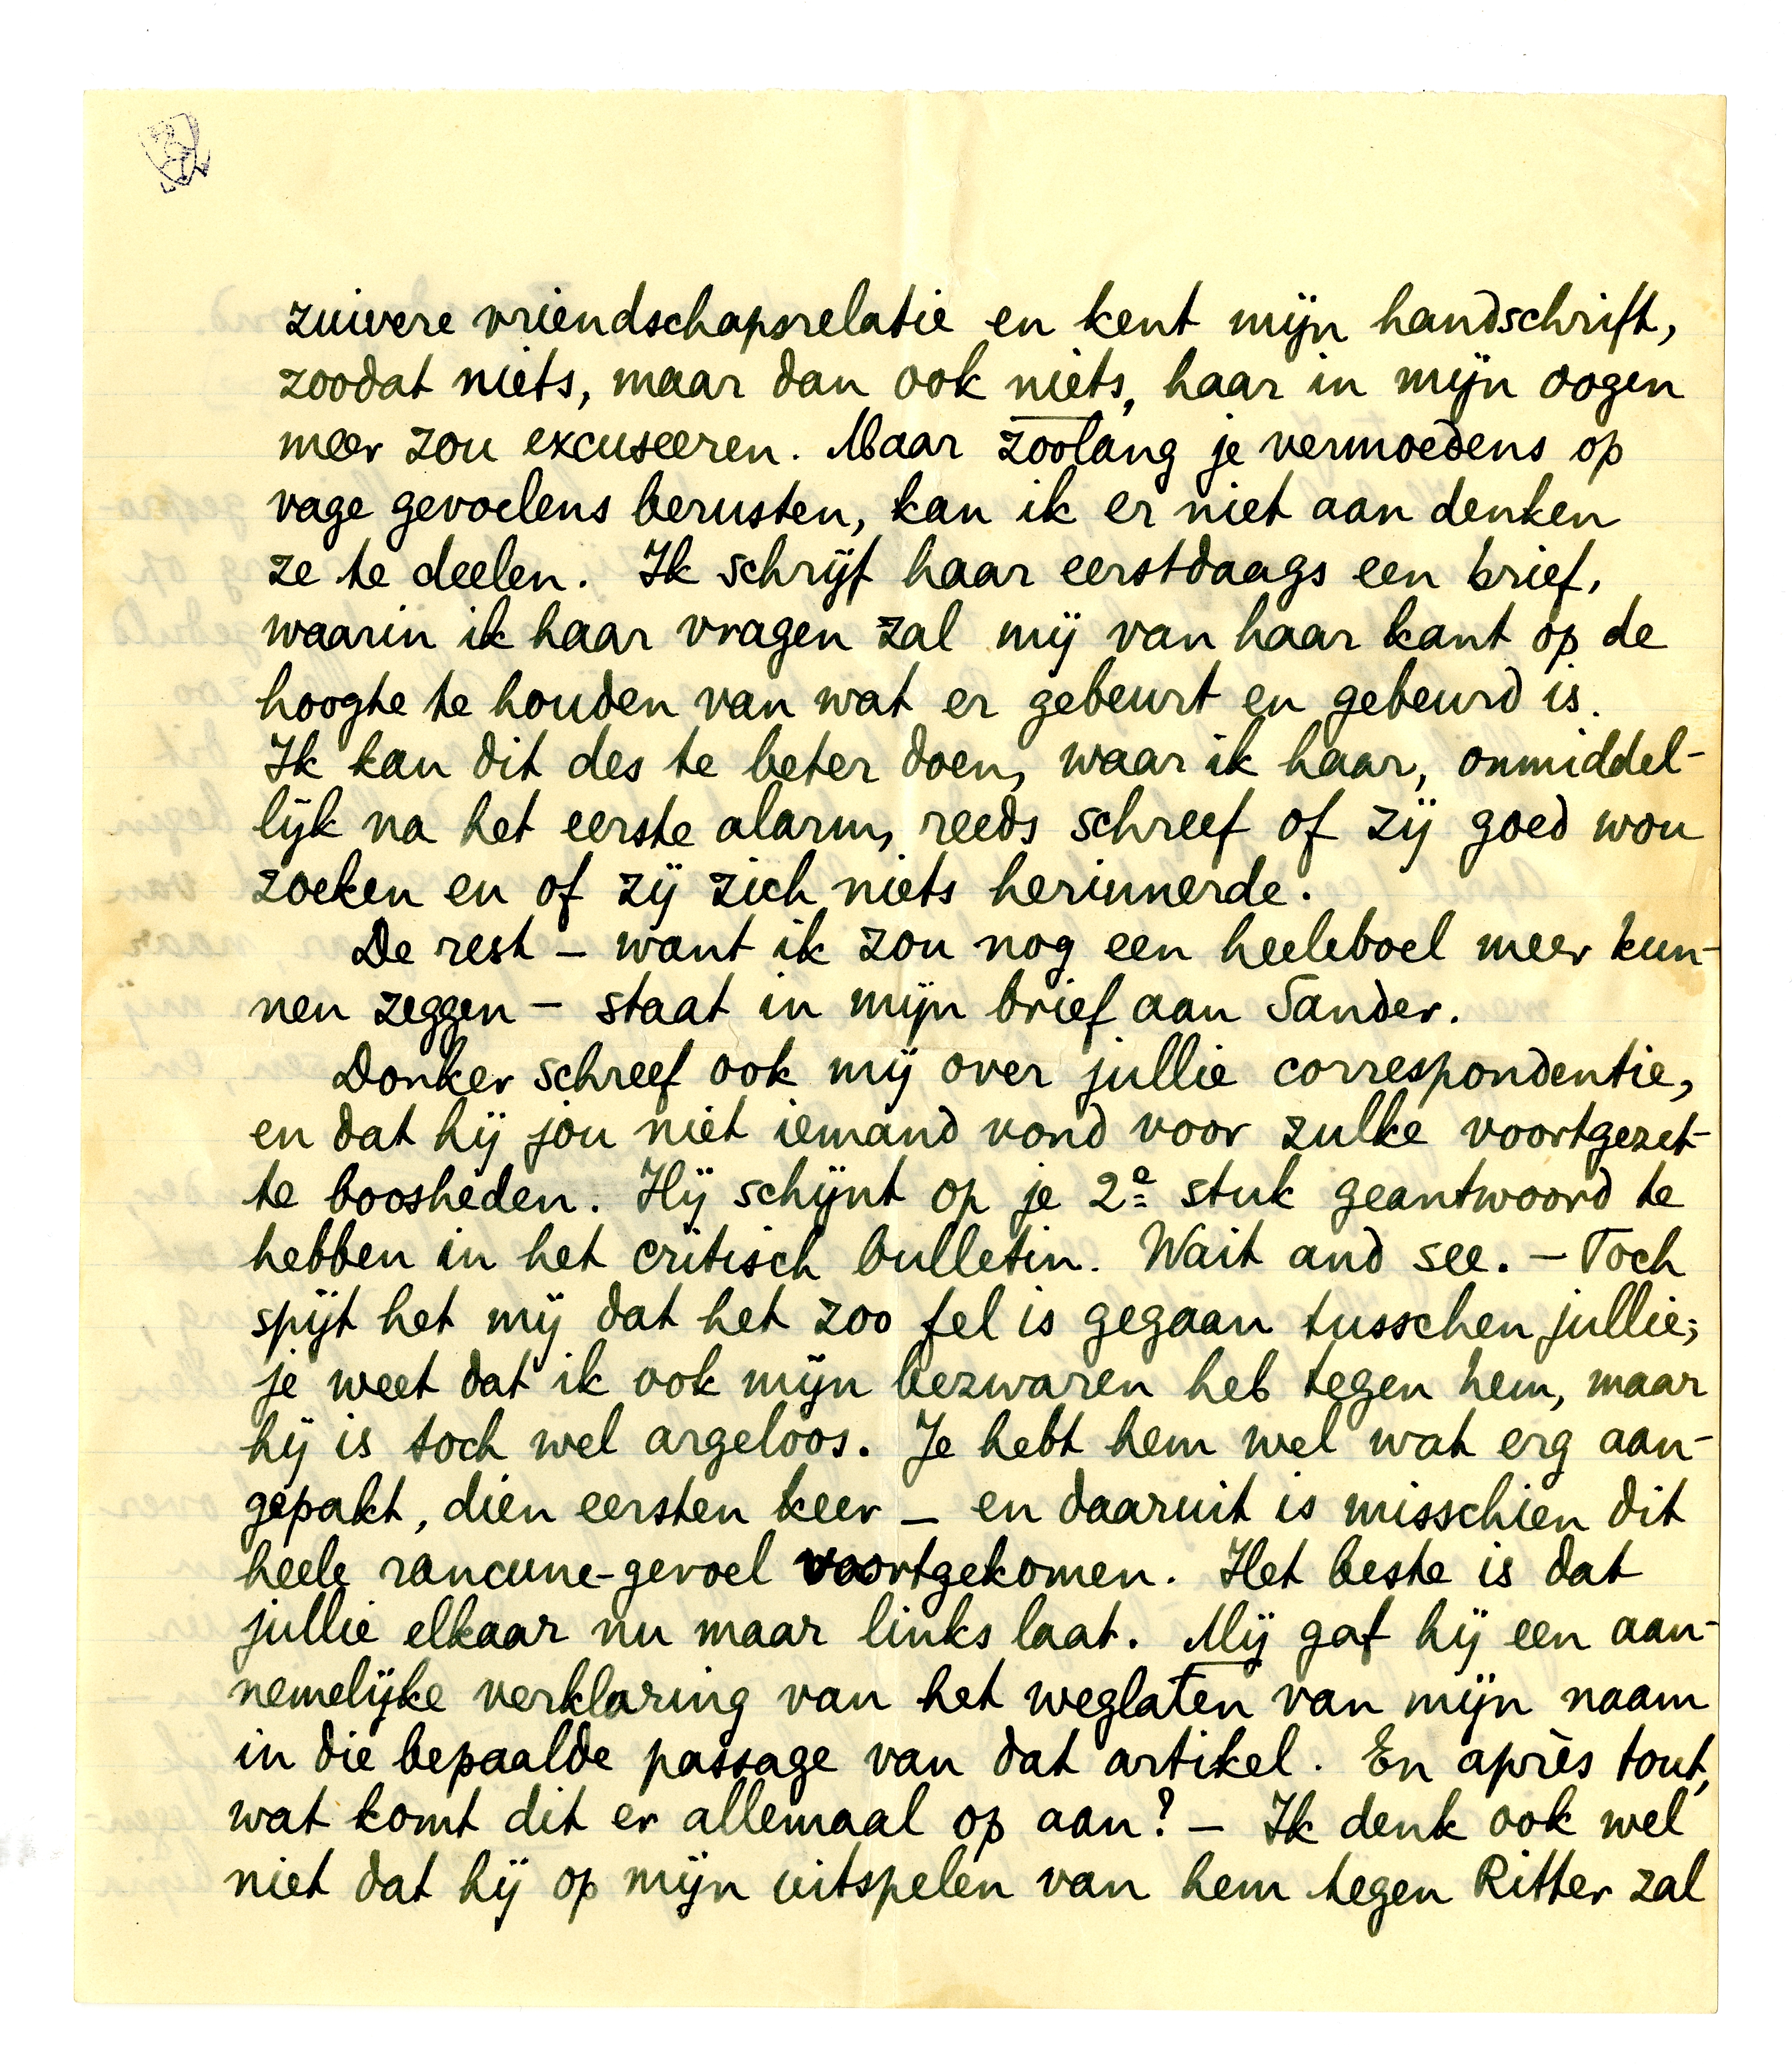 zuivere vriendschapsrelatie en kent mijn handschrift,
zoodat niets, maar dan ook niets, haar in mijn oogen
meer zou excuseeren. Maar zoolang je vermoedens op
vage gevoelens berusten, kan ik er niet aan denken
ze te deelen. Ik schrijf haar eerstdaags een brief,
waarin ik haar vragen zal mij van haar kant op de
hoogte te houden van wat er gebeurt en gebeurd is.
Ik kan dit des te beter doen, waar ik haar, onmiddel-
lijk na het eerste alarm, reeds schreef of zij goed wou
zoeken en of zij zich niets herinnerde.
De rest – want ik zou nog een heeleboel meer kun-
nen zeggen – staat in mijn brief aan Sander.
Donker schreef ook mij over jullie correspondentie,
en dat hij jou niet iemand vond voor zulke voortgezet-
te boosheden. Hij schijnt op je 2e stuk geantwoord te
hebben in het critisch bulletin. Wait and see. – Toch
spijt het mij dat het zoo fel is gegaan tusschen jullie;
je weet dat ik ook mijn bezwaren heb tegen hem, maar
hij is toch wel argeloos. Je hebt hem wel wat erg aan-
gepakt, dien eersten keer – en daaruit is misschien dit
heele rancune-gevoel voortgekomen. Het beste is dat
jullie elkaar nu maar links laat. Mij gaf hij een aan-
nemelijke verklaring van het weglaten van mijn naam
in die bepaalde passage van dat artikel. En après tout,
wat komt dit er allemaal op aan? – Ik denk ook wel
niet dat hij op mijn uitspelen van hem tegen Ritter zal